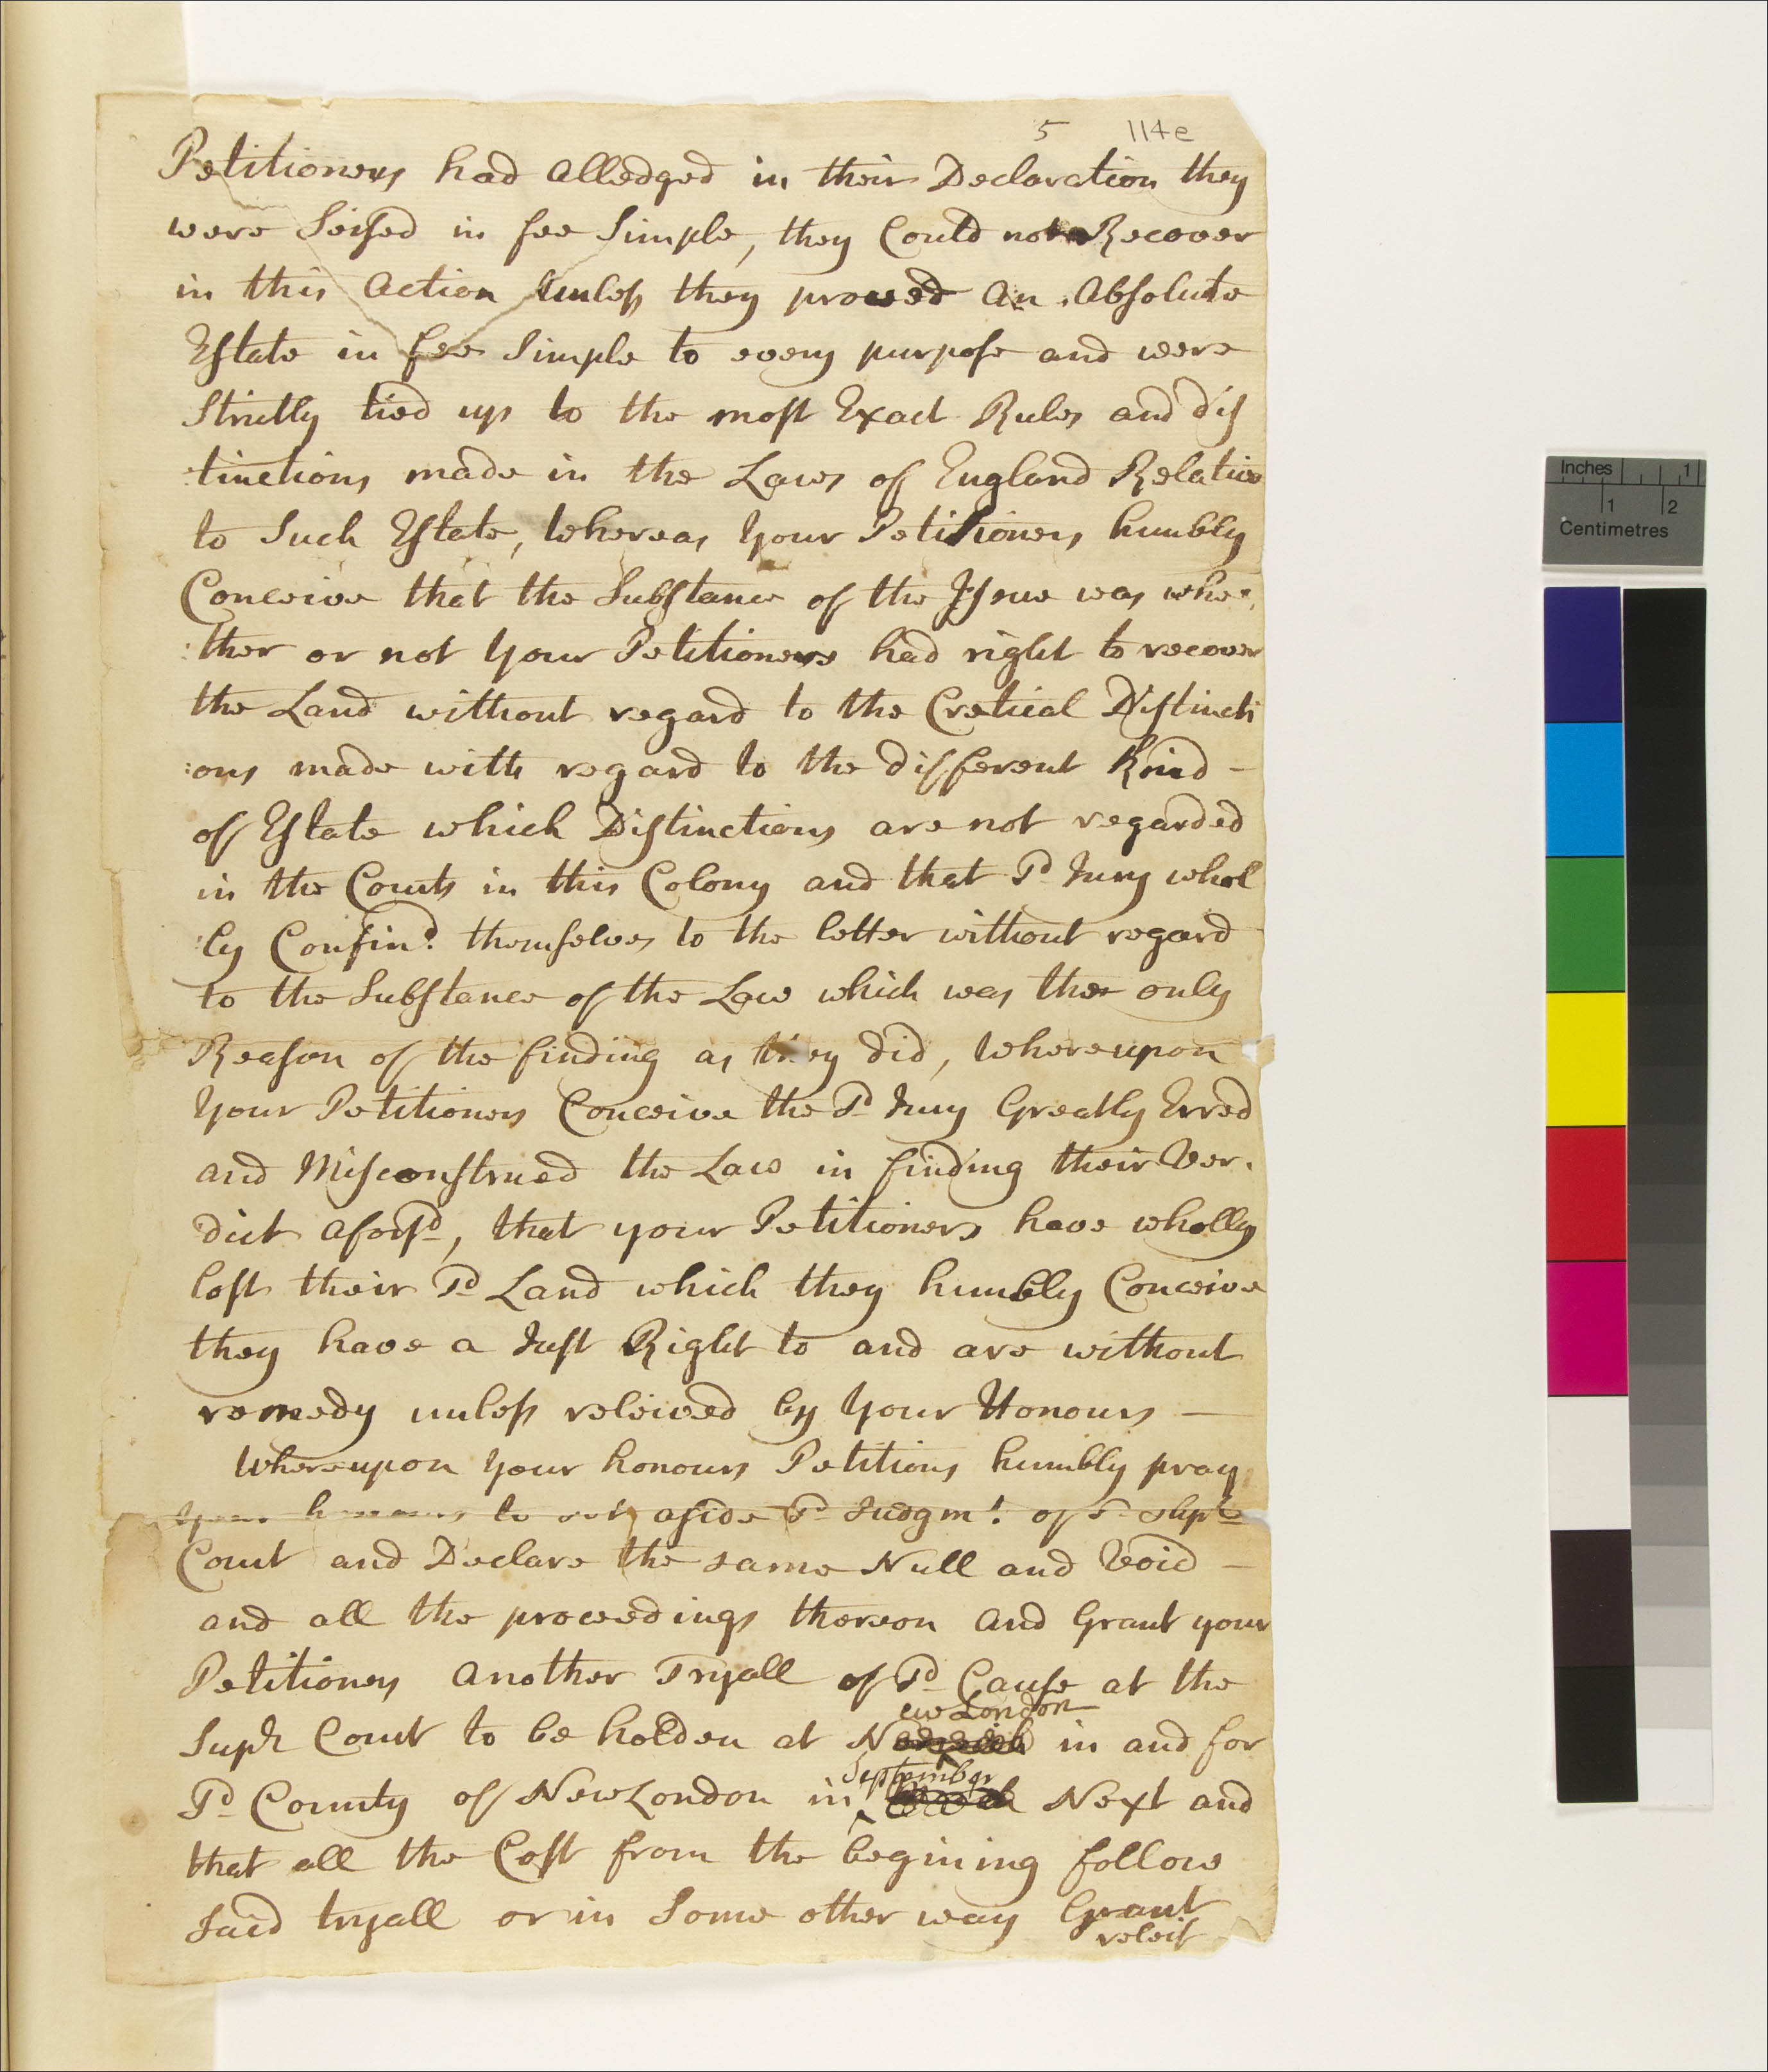 5 114e
Petitioners had Alledged in their Declaration they
were Seised in fee Simple, they Could not Recover
in this Action unless they proved An Absolute
Estate in fee Simple to every purpose and were
Strictly tied up to the most Exact Rules and dis
:tinctions made in the Laws of England Relative
to Such Estate, Whereas Your Petitioners humbly
Conceive that the Substance of the Issue was whe:
:ther or not Your Petitioners had right to recover
the Land without regard to the Cretical Distincti
:ons made with regard to the different Kind -
of Estate which Distinctions are not regarded
in the Courts in this Colony and that sd Jury whol
:ly Confind. themselves to the letter without regard
to the Substance of the Law which was the only
Reason of the finding as they did, Whereupon
Your Petitioners Conceive the sd Jury Greatly Erred
and Misconstrued the Law in finding their Ver.
dict aforsd, that your Petitioners have wholly
lost their sd Land which they humbly Conceive
they have a Just Right to and are without
remedy unless releived by Your Honours —
Whereupon Your honours Petitions humbly pray
Your honours to set aside sd Judgmt. of sd Supr
Court and Declare the same Null and Void —
and all the proceedings thereon and Grant your
Petitioners Another Tryall of sd Cause at the
ew London
Supr Court to be holden at N in and for
September
sd County of New London in ^ Next and
that all the Cost from the begining follow
Said tryall or in Some other way Grant
releif